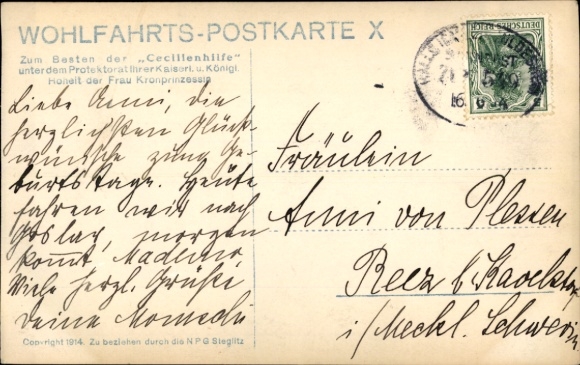 WOHLFAHRTS-POSTKARTE X
Zum Besten der „Cecilienhilfe"
unter dem Protektorat Ihrer Kaiserl. u. Königl.
Hoheit der Frau Kronprinzessin
Liebe Anni, die
herzlichsten Glück-
wünsche zum Ge-
burtstage. Heute
fahren wir nach
Goslar, morgen
kommt
Viele herzl. Grüße
Deine
Copyright 1914. Zu beziehen durch die NPG Steglitz
DEUTSCHES REICH
5
Fräulein
Anni von Plessen
Reez b/Kavelstorf
i/Meckl. Schwerin